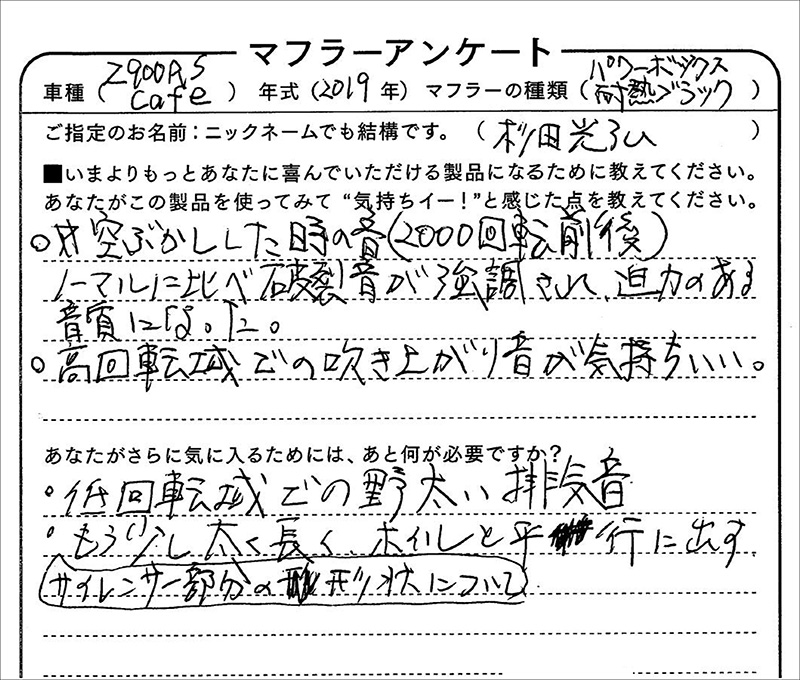 マフラーアンケート
車種（Z900RS Cafe） 年式（2019年） マフラーの種類（パワーボックス 耐熱ブラック）
ご指定のお名前：ニックネームでも結構です。（杉田光弘）
■いまよりもっとあなたに喜んでいただける製品になるために教えてください。
あなたがこの製品を使ってみて“気持ちイー！”と感じた点を教えてください。
○空ぶかしした時の音（2000回転前後）
ノーマルに比べ破裂音が強調され、迫力のある
音質になった。
○高回転域での吹き上がり音が気持ちいい。
あなたがさらに気に入るためには、あと何が必要ですか？
・低回転域での野太い排気音
・もう少し太く長く、ホイルと平行に出す
サイレンサー部分の形状について